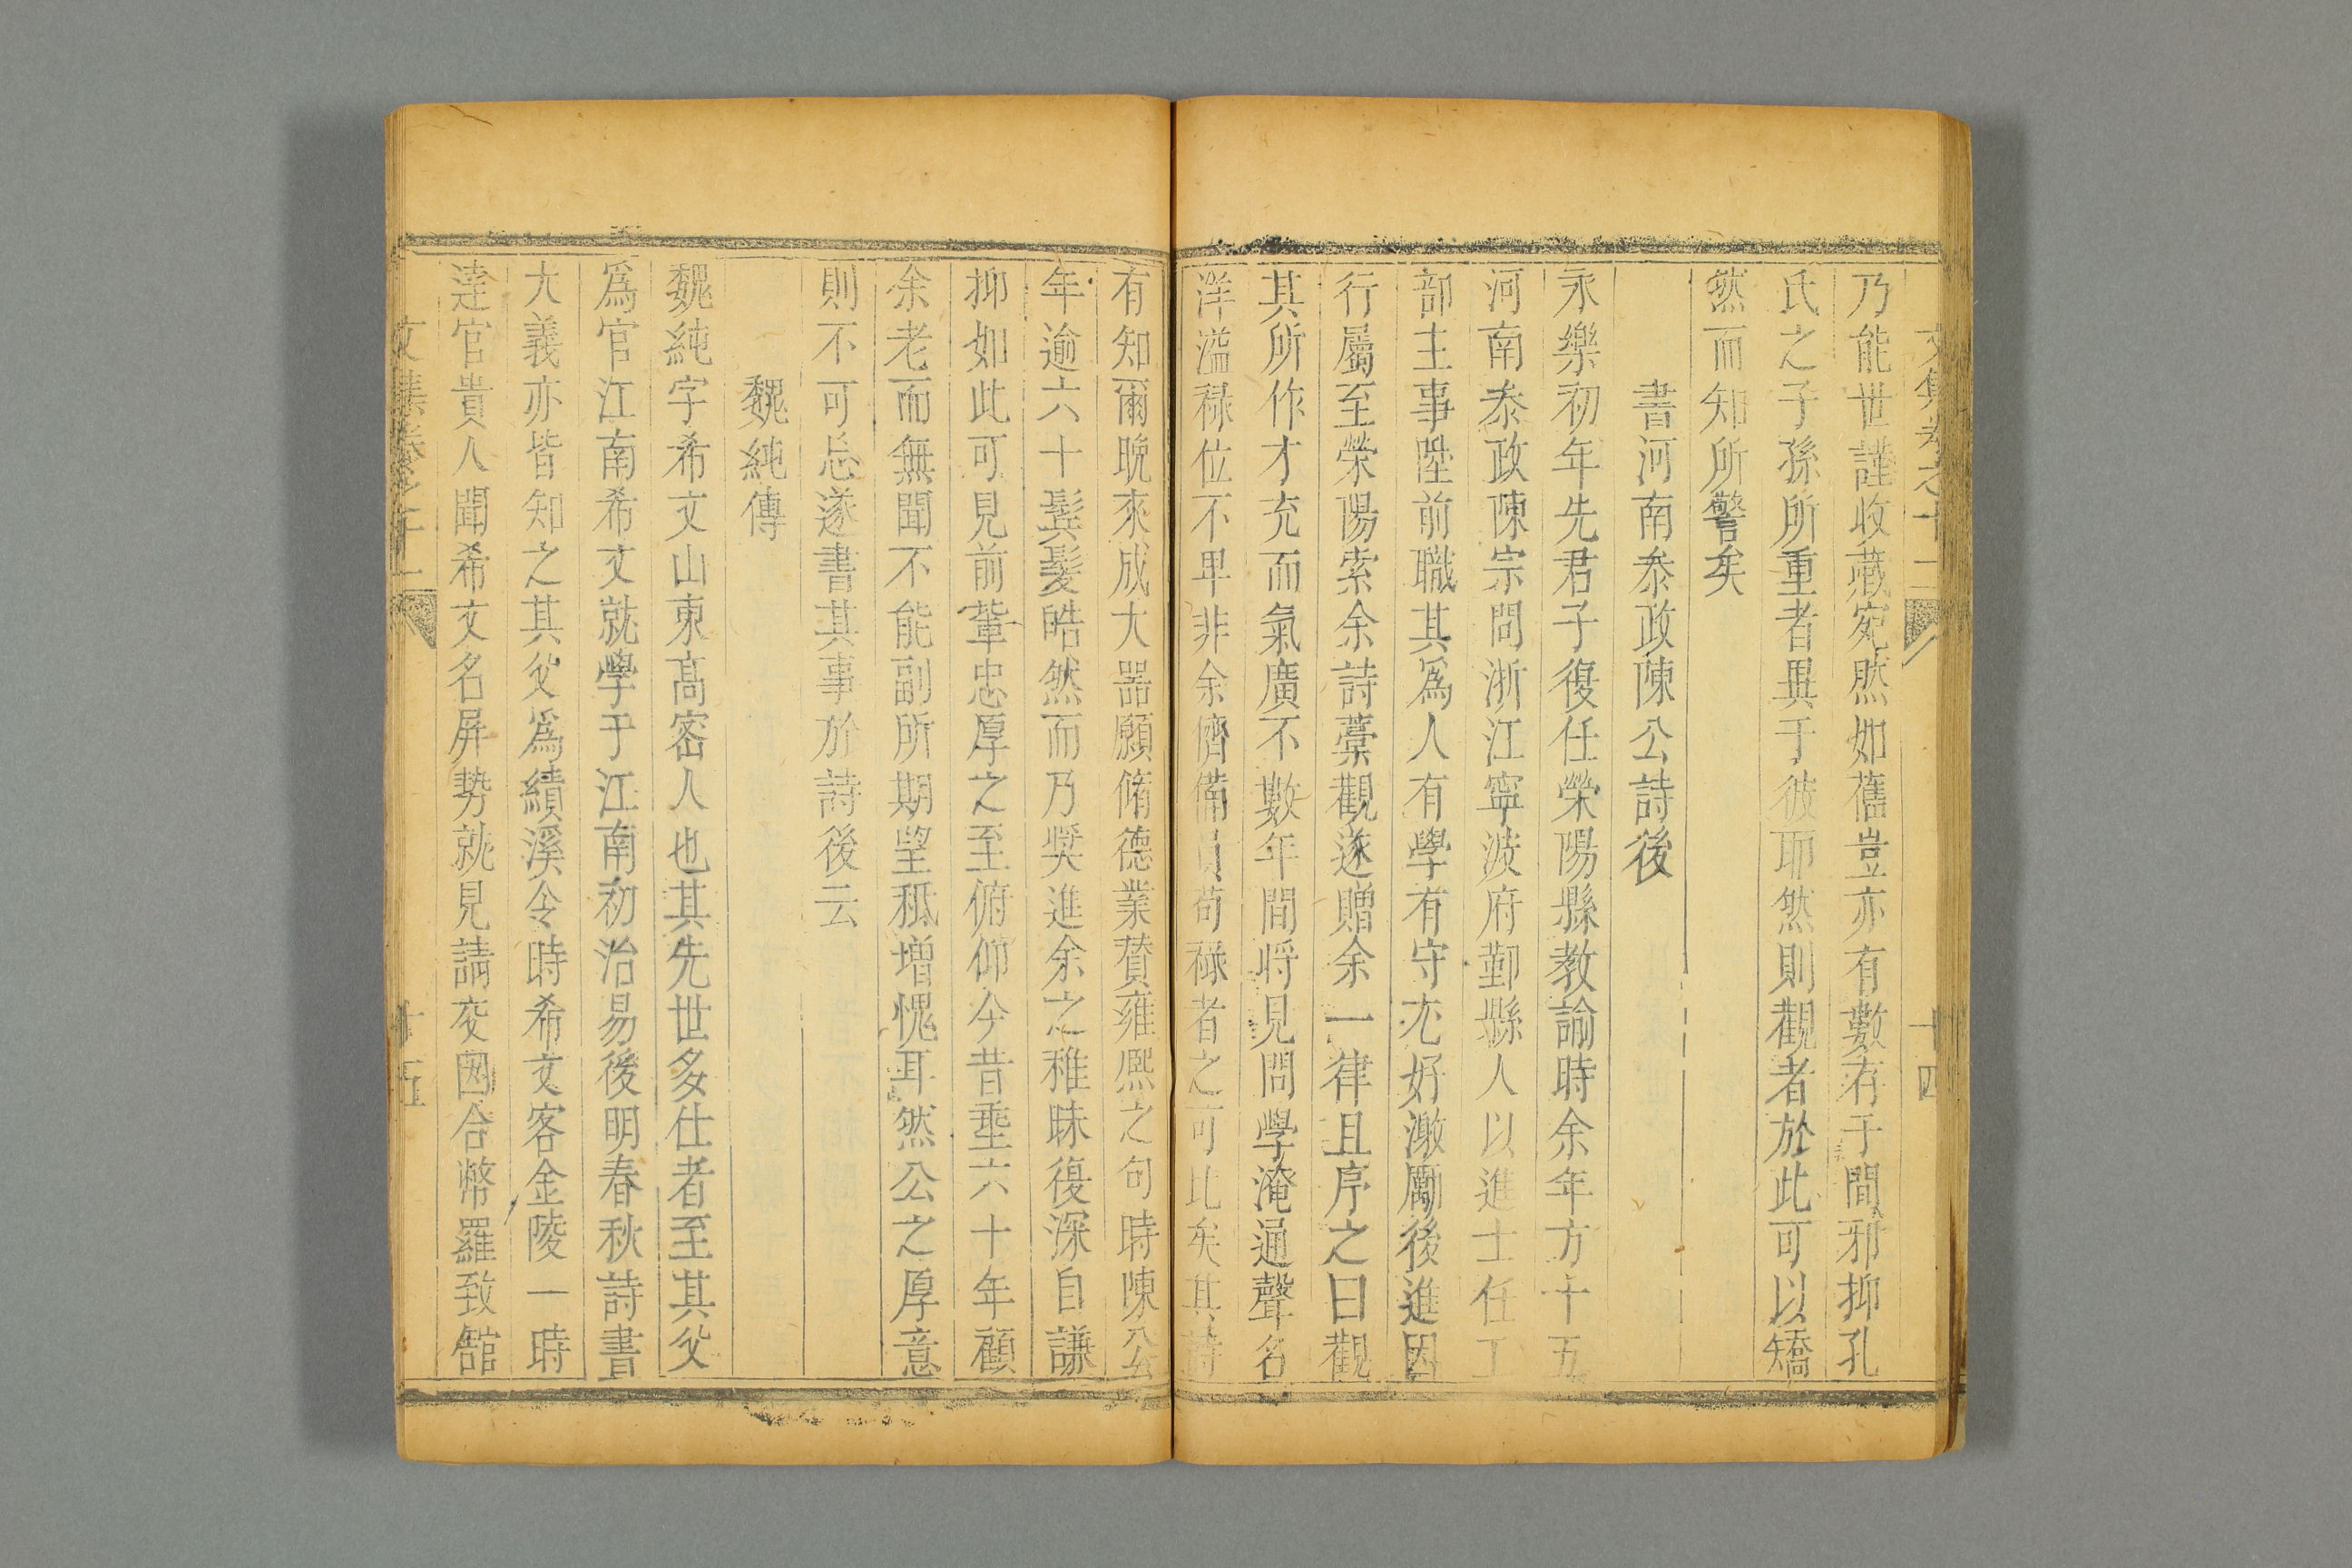 乃能世謹收藏宛然如舊豈亦有數存于間邪抑孔
氏之子孫所重者異于彼耶然則觀者於此可以矯
然而知所警矣
書河南叅政陳公詩後
永樂初年先君子復任榮陽縣教諭時余年方十五
河南叅政陳宗問浙江寧波府鄞縣人以進士任工
部主事陞前職其爲人有學有守尤好激勵後進因
行屬至榮陽索余詩藁觀遂贈余一律且序之曰觀
其所作才充而氣廣不數年間將見問學淹通聲名
洋溢祿位不卑非余儕備員苟祿者之可比矣其詩
有知爾晚來成大器願脩德業賛雍熈之句時陳公
年逾六十鬂髮皓然而乃奨進余之稚昧復深自謙
抑如此可見前輩忠厚之至俯仰今昔埀六十年顧
余老而無聞不能副所期望秪增愧耳然公之厚意
則不可忘遂書其事於詩後云
魏純傳
魏純字希文山東高密人也其先世多仕者至其父
爲官江南希文就學于江南初治易後明春秋詩書
大義亦皆知之其父爲績溪令時希文客金陵一時
達官貴人聞希文名屏勢就見請交因合幣羅致舘
文集卷之十二
十五
文集卷之十二
十四